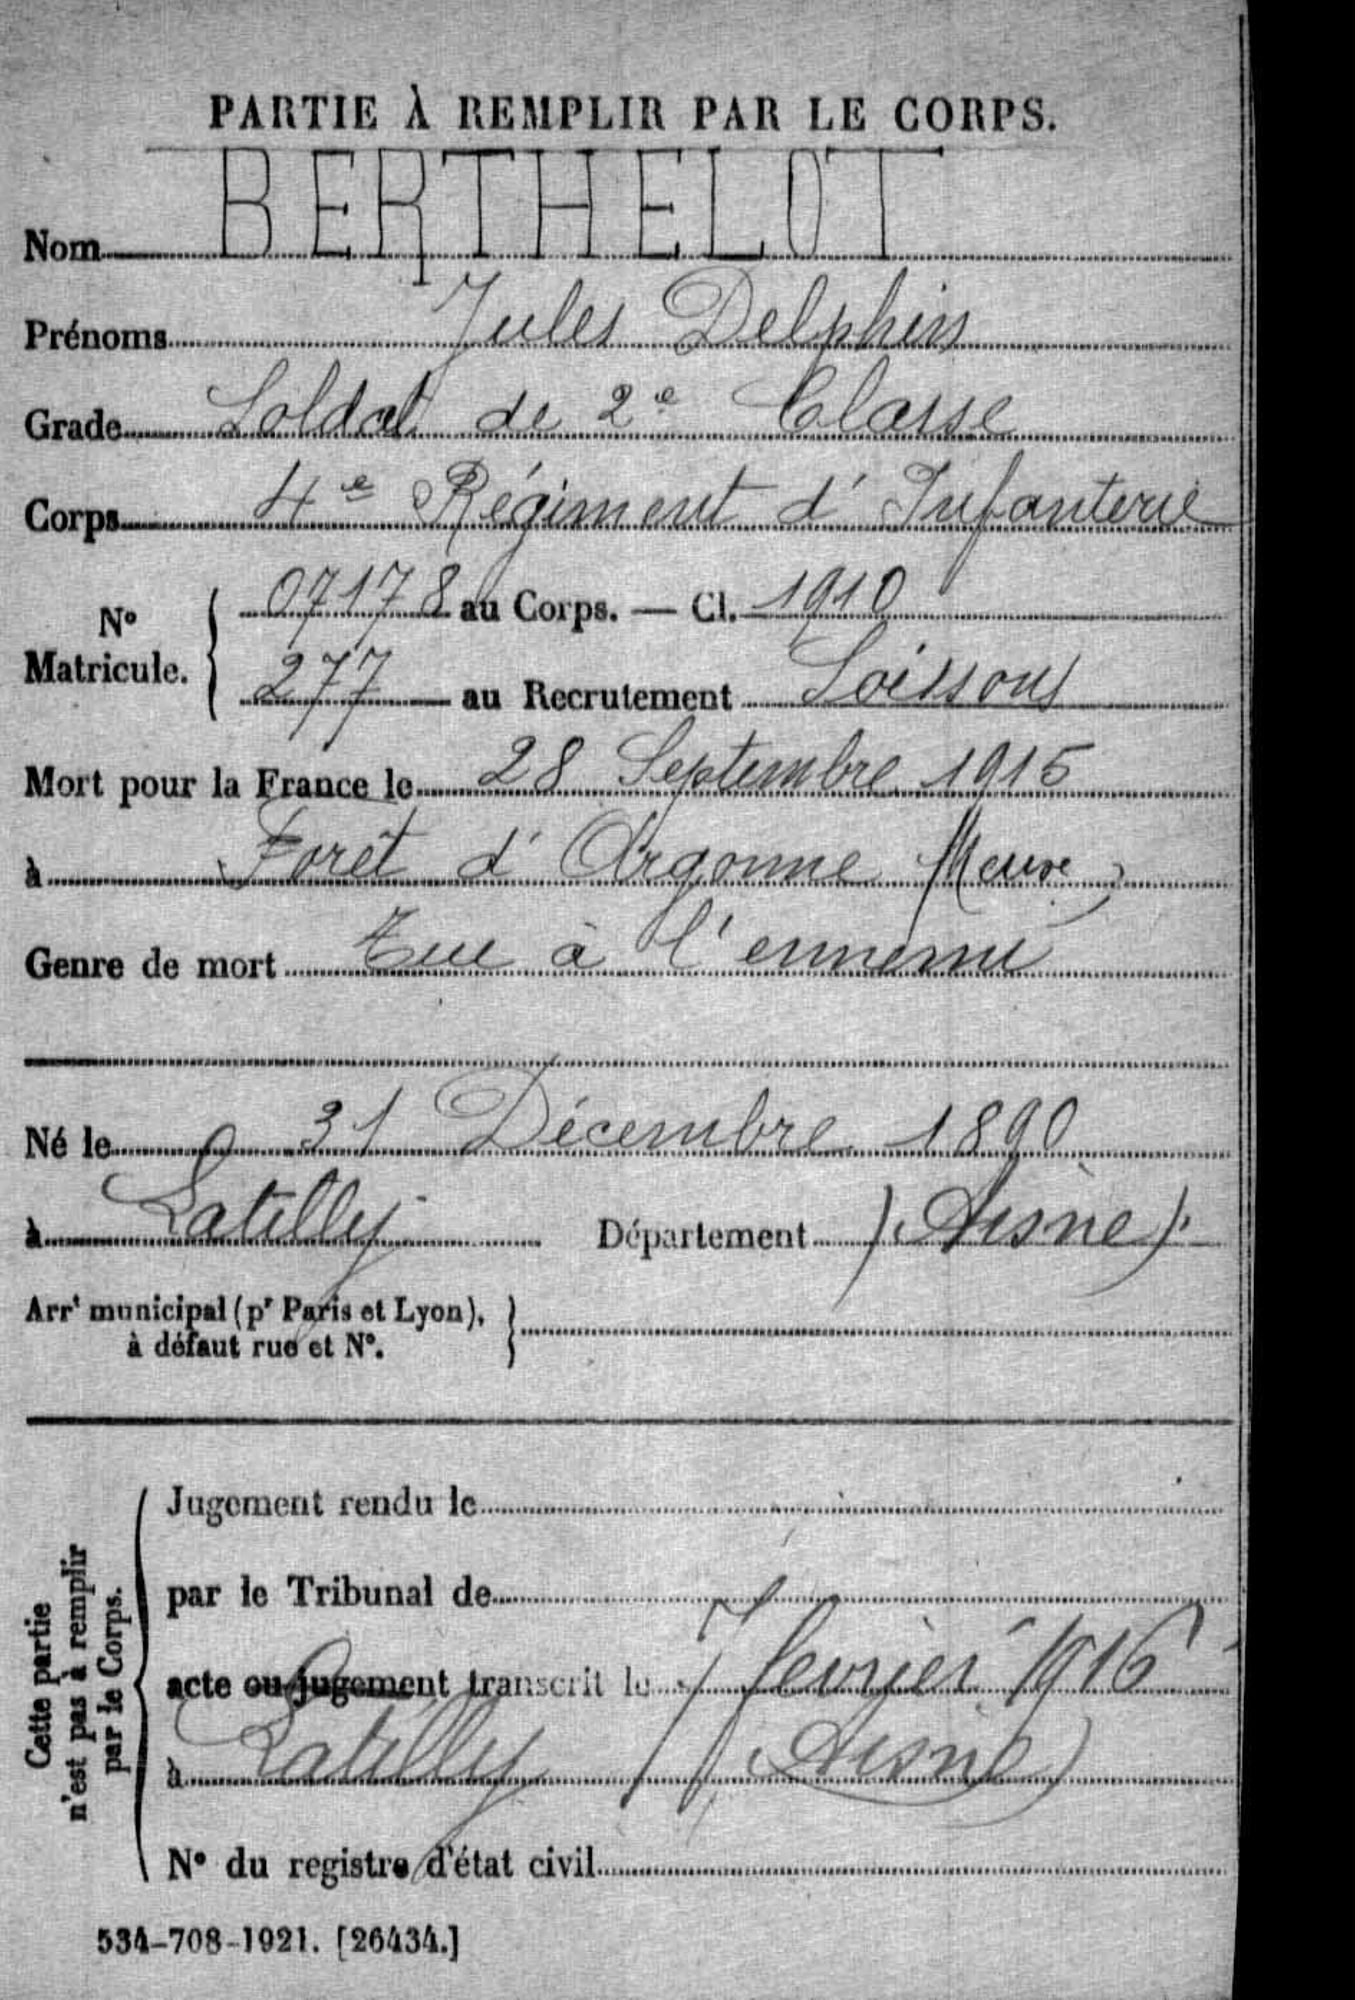 PARTIE À REMPLIR PAR LE CORPS.
Nom BERTHELOT
Prénoms Jules Delphin
Grade Soldat de 2e Classe
Corps 4e Régiment d'Infanterie
No Matricule. { 07178 au Corps. — Cl. 1910
277 au Recrutement Soissons
Mort pour la France le 28 Septembre 1915
à Forêt d'Argonne (Meuse)
Genre de mort Tué à l'ennemi
Né le 31 Décembre 1890
à Latilly Département (Aisne)
Arrt municipal (pr Paris et Lyon),
à défaut rue et No.
Cette partie
n'est pas à remplir
par le Corps.
Jugement rendu le
par le Tribunal de
acte ou jugement transcrit le 7 février 1916
à Latilly (Aisne)
No du registre d'état civil
534-708-1921. [26434.]